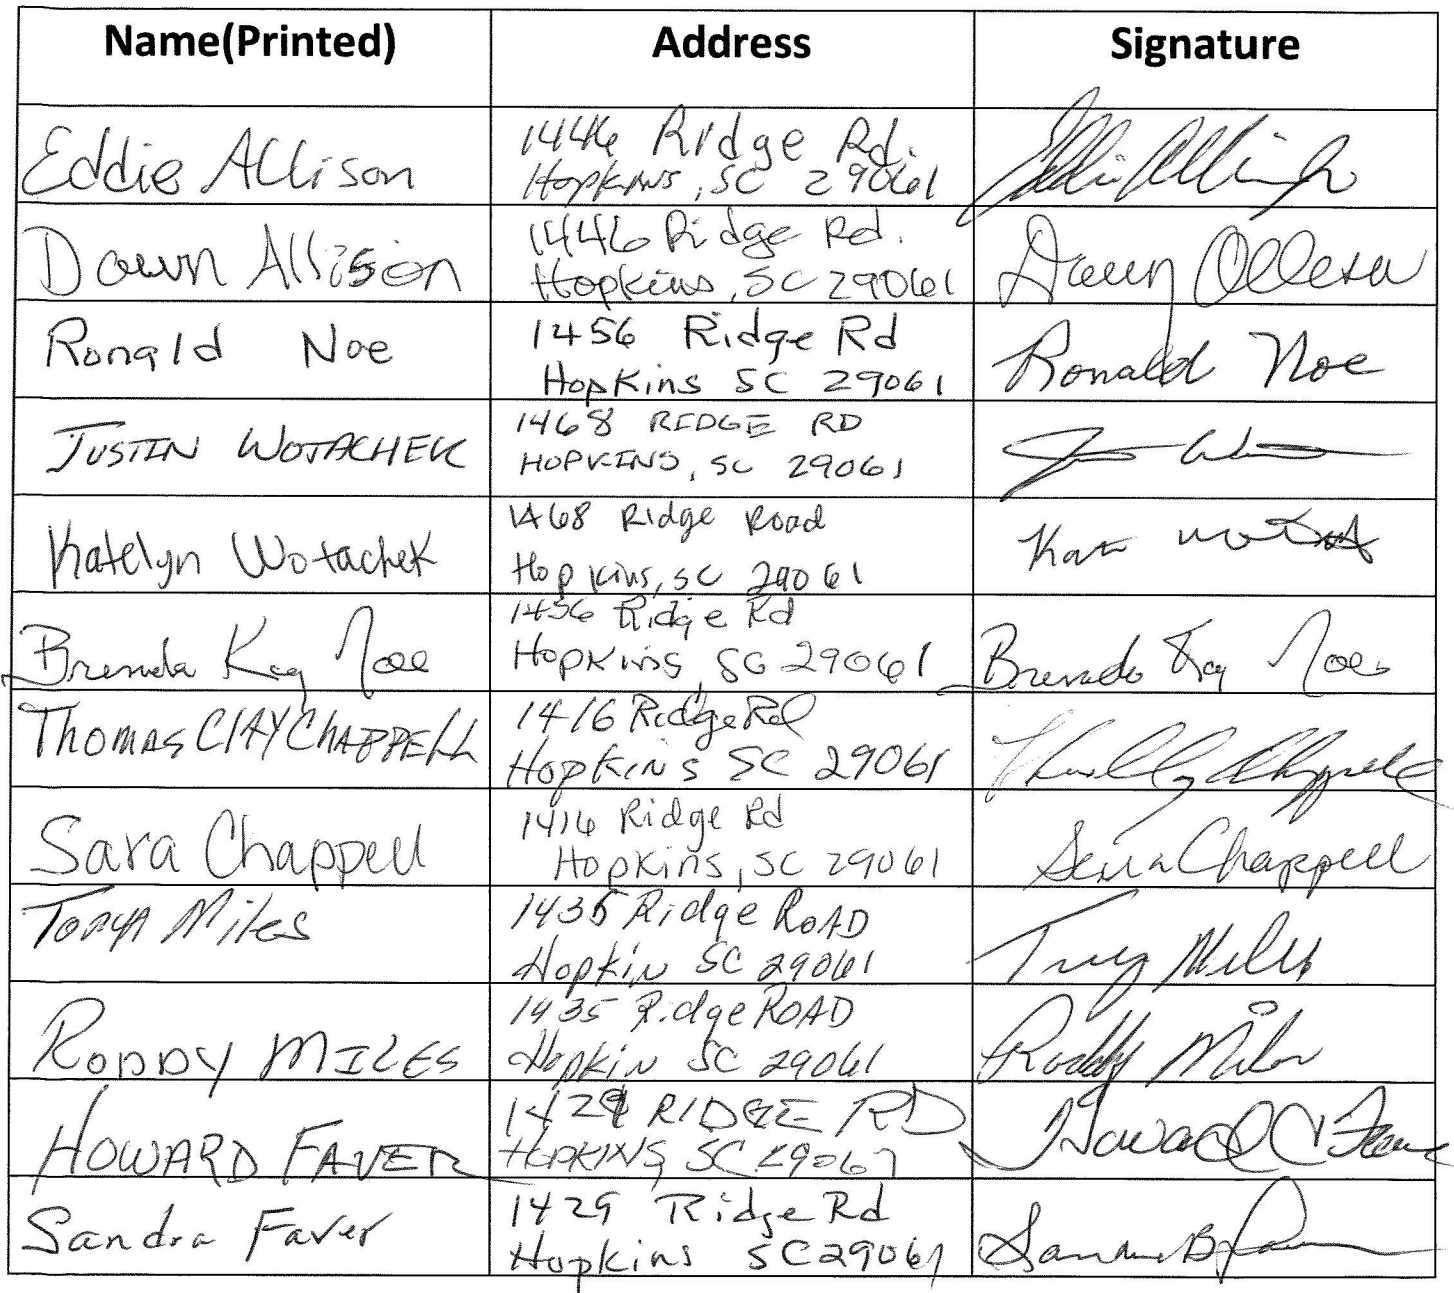 Name(Printed) Address Signature
Eddie Allison
1446 Ridge Rd.
Hopkins, SC 29061
Eddie Allison
Dawn Allison
1446 Ridge Rd.
Hopkins, SC 29061
Dawn Allison
Ronald Noe
1456 Ridge Rd
Hopkins SC 29061
Ronald Noe
JUSTIN WOTACHEK
1468 RIDGE RD
HOPKINS, SC 29061
Katelyn Wotachek
1468 Ridge Road
Hopkins, SC 29061
Brenda Kay Noe
1456 Ridge Rd
Hopkins, SC 29061
Brenda Kay Noe
Thomas CLAY CHAPPELL
1416 Ridge Rd
Hopkins SC 29061
Chappell
Sara Chappell
1416 Ridge Rd
Hopkins, SC 29061
Sara Chappell
Miles
1435 Ridge ROAD
Hopkin SC 29061
Miles
RODDY MILES
1435 Ridge ROAD
Hopkin SC 29061
Roddy Miles
HOWARD FAVER
1429 RIDGE RD
HOPKINS SC 29061
Howard C Faver
Sandra Faver
1429 Ridge Rd
Hopkins SC 29061
Sandra B Faver